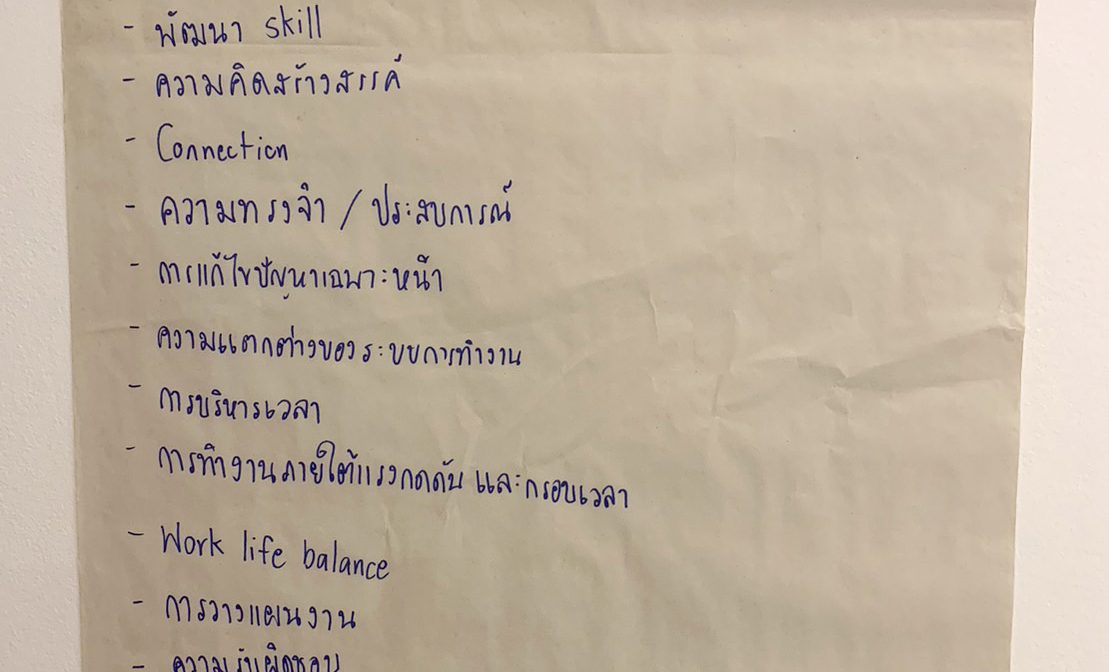 - พัฒนา skill
- ความคิดสร้างสรรค์
- Connection
- ความทรงจำ / ประสบการณ์
- การแก้ไขปัญหาเฉพาะหน้า
- ความแตกต่างของระบบการทำงาน
- การบริหารเวลา
- การทำงานภายใต้แรงกดดัน และกรอบเวลา
- Work life balance
- การวางแผนงาน
- ความรับผิดชอบ